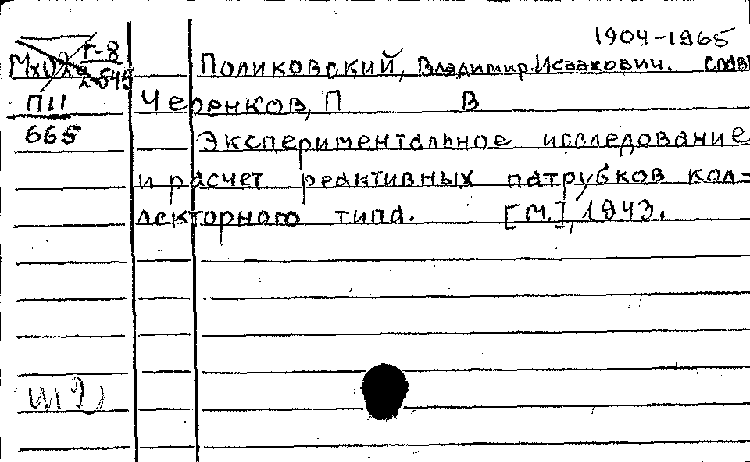 1904-1965
Г-8
Поликовский, Владимир Исаакович.
П11 Черенков, П В
665 Экспериментальное исследование
и расчет реактивных патрубков кол=
лекторного типа. [М.], 1943.